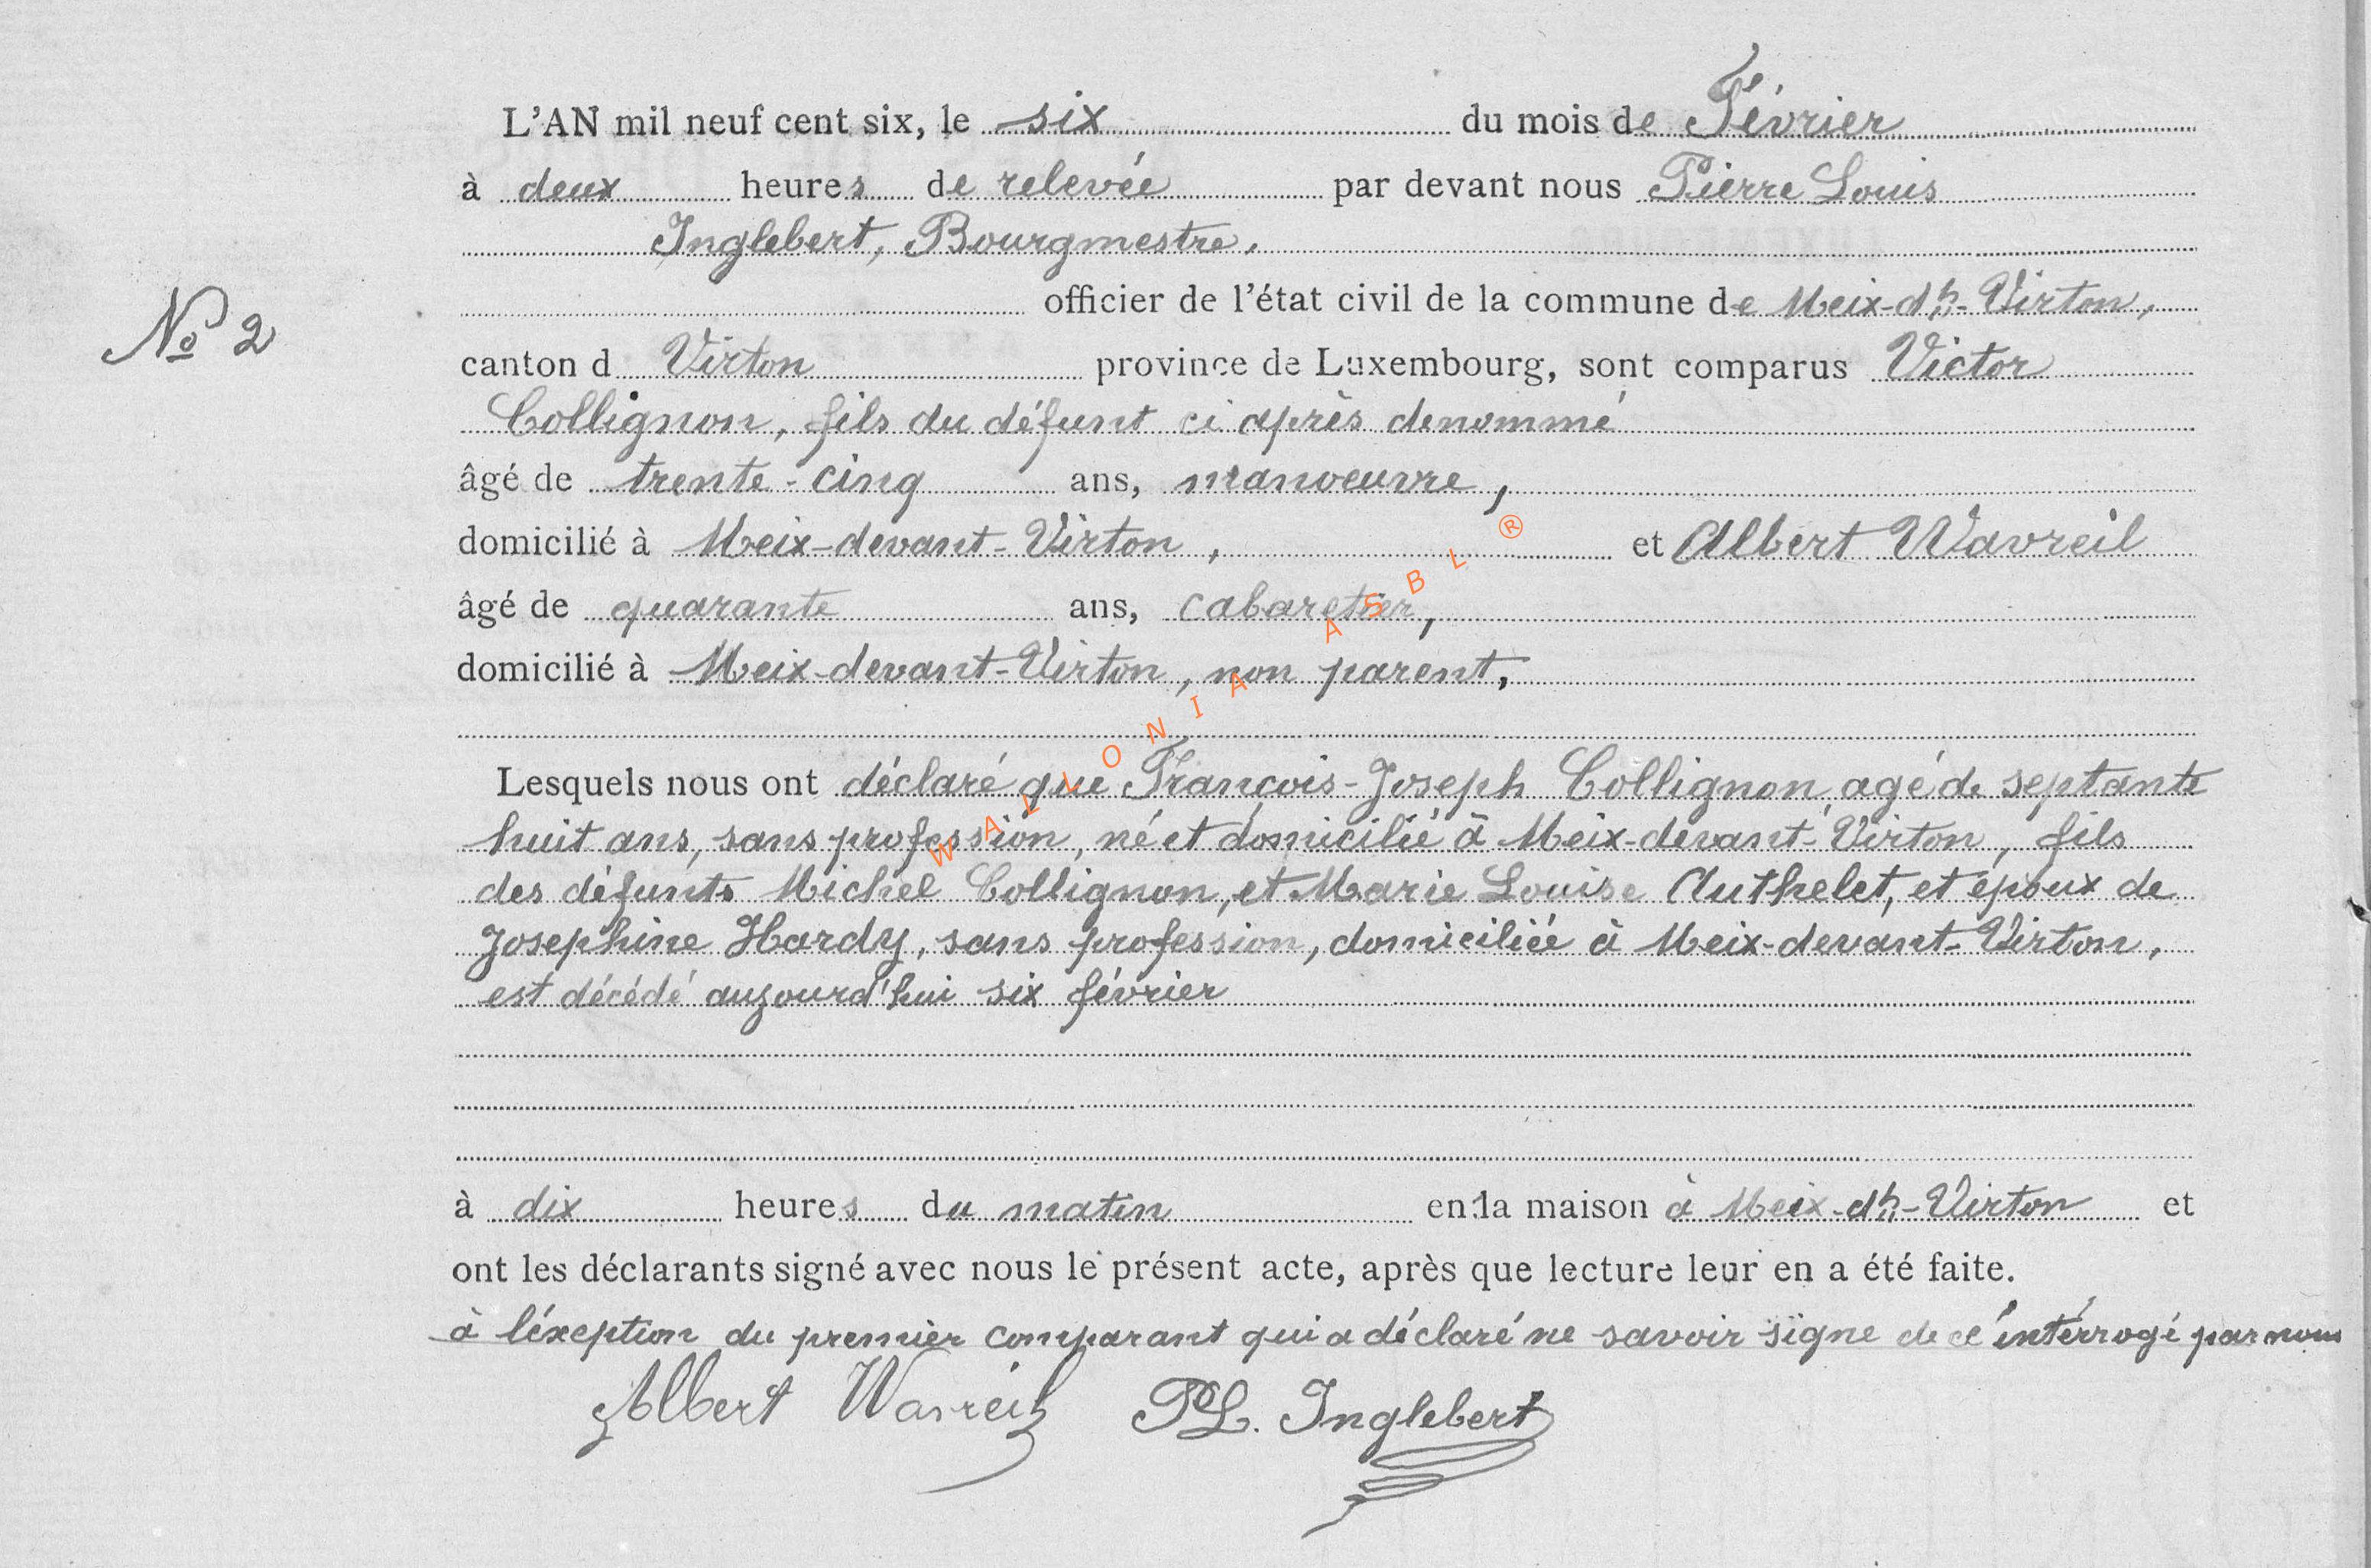 L'AN mil neuf cent six, le six du mois de Février
à deux heures de relevée par devant nous Pierre Louis
Inglebert, Bourgmestre,
officier de l'état civil de la commune de Meix-dt-Virton,
N° 2
canton d Virton province de Luxembourg, sont comparus Victor
Collignon, fils du défunt ci après denommé
âgé de trente-cinq ans, manoeuvre,
domicilié à Meix-devant-Virton, et Albert Wavreil
âgé de quarante ans, cabaretier,
domicilié à Meix-devant-Virton, non parent,
Lesquels nous ont déclaré que François-Joseph Collignon, agé de septante
huit ans, sans profession, né et domicilié à Meix-devant-Virton, fils
des défunts Michel Collignon, et Marie Louise Authelet, et époux de
Josephine Hardy, sans profession, domiciliée à Meix-devant-Virton,
est décédé aujourd'hui six février
à dix heures du matin en la maison à Meix-dt-Virton et
ont les déclarants signé avec nous le présent acte, après que lecture leur en a été faite.
à l'éxeption du premier comparant qui a déclaré ne savoir signe de ce intérrogé par nous
Albert Wavreil P.L. Inglebert
WALLONIA ASBL ®